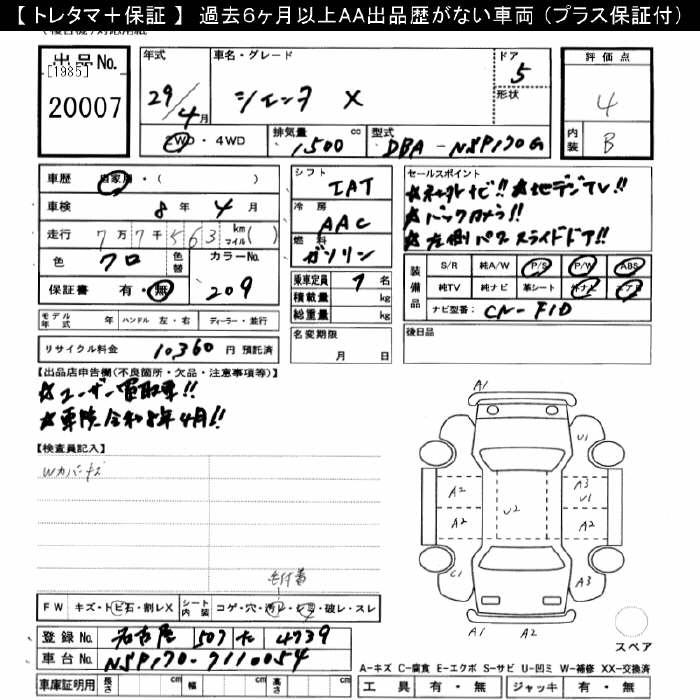 【トレタマ＋保証】 過去6ヶ月以上AA出品歴がない車両（プラス保証付）
出品No.
[1985]
20007
年式
29/4月
車名・グレード
シエンタ X
ドア
5
形状
評価点
4
内装
B
2WD・4WD
排気量 1,500 cc
型式 DBA-NSP170G
車歴 自家用・( )
車検 8年 4月
走行 7万7千563 km マイル( )
色 クロ
色替
カラーNo. 209
保証書 有・無
シフト IAT
冷房 AAC
燃料 ガソリン
乗車定員 7名
積載量 kg
総重量 kg
セールスポイント
☆ネットナビ!! ☆地デジTV!!
☆バックカメラ!!
☆左側パワースライドドア!!
装備品
S/R 純A/W P/S P/W ABS
純TV 純ナビ 革シート
ナビ型番( CN-F1D )
モデル年式 年 ハンドル 左・右 ディーラー・並行
リサイクル料金 10,360円 預託済
名変期限 月 日
後日品
【出品店申告欄(不良箇所・欠品・注意事項等)】
☆ユーザー買取車!!
☆車検令和8年4月!!
【検査員記入】
Wカバーキズ
A1
U1
A2 A3 U1
U2
A2 A2
C1 A3
A1 A2
毛付着
FW キズ・トビ石・割レX シート内装 コゲ・穴・汚レ・シミ・破レ・スレ
登録No. 名古屋 507 た 4739
車台No. NSP170-7110054
スペア
A-キズ C-腐食 E-エクボ S-サビ U-凹ミ W-補修 XX-交換済
車庫証明用 長さ cm 幅 cm 高さ cm
工具 有・無 ジャッキ 有・無